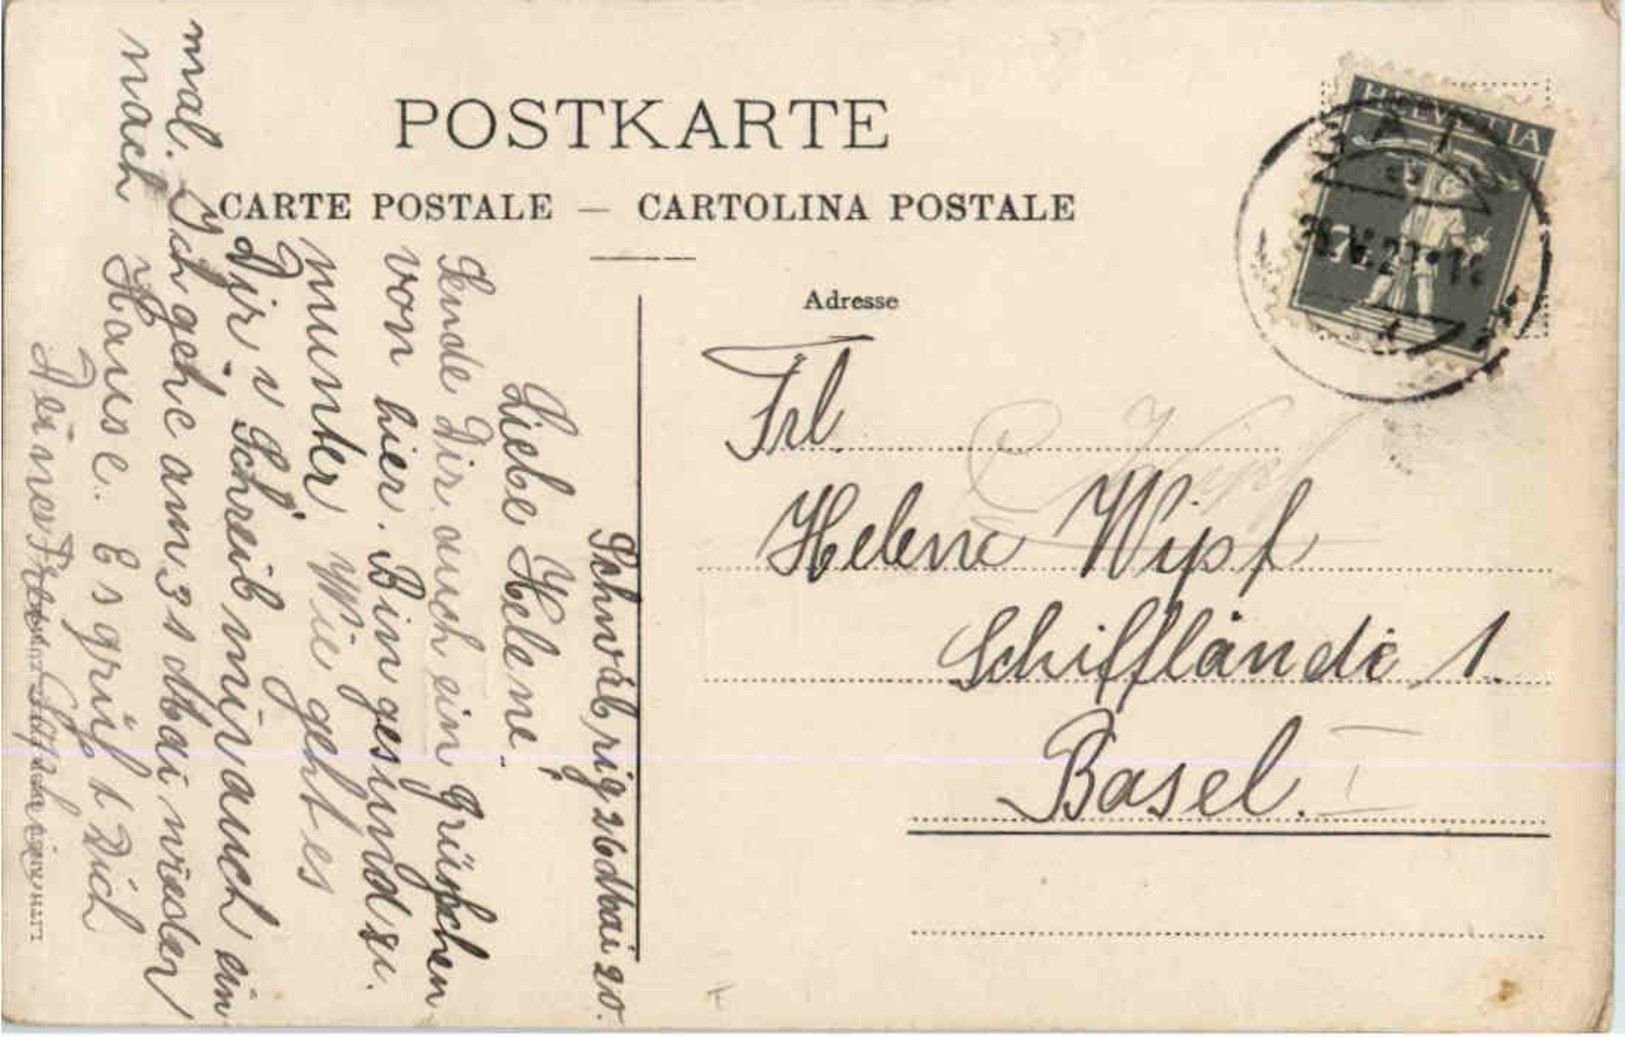 POSTKARTE
CARTE POSTALE — CARTOLINA POSTALE
Adresse
HELVETIA
Frl.
Helene Wipf
Schifflände 1.
Basel. I
26 Mai 20.
Liebe Helene!
Sende Dir auch ein Grüßchen
von hier. Bin gesund u.
munter. Wie geht es
Dir? Schreib mir auch ein
mal. Ich gehe am 31 Mai wieder
nach Hause. Es grüßt Dich
Deine